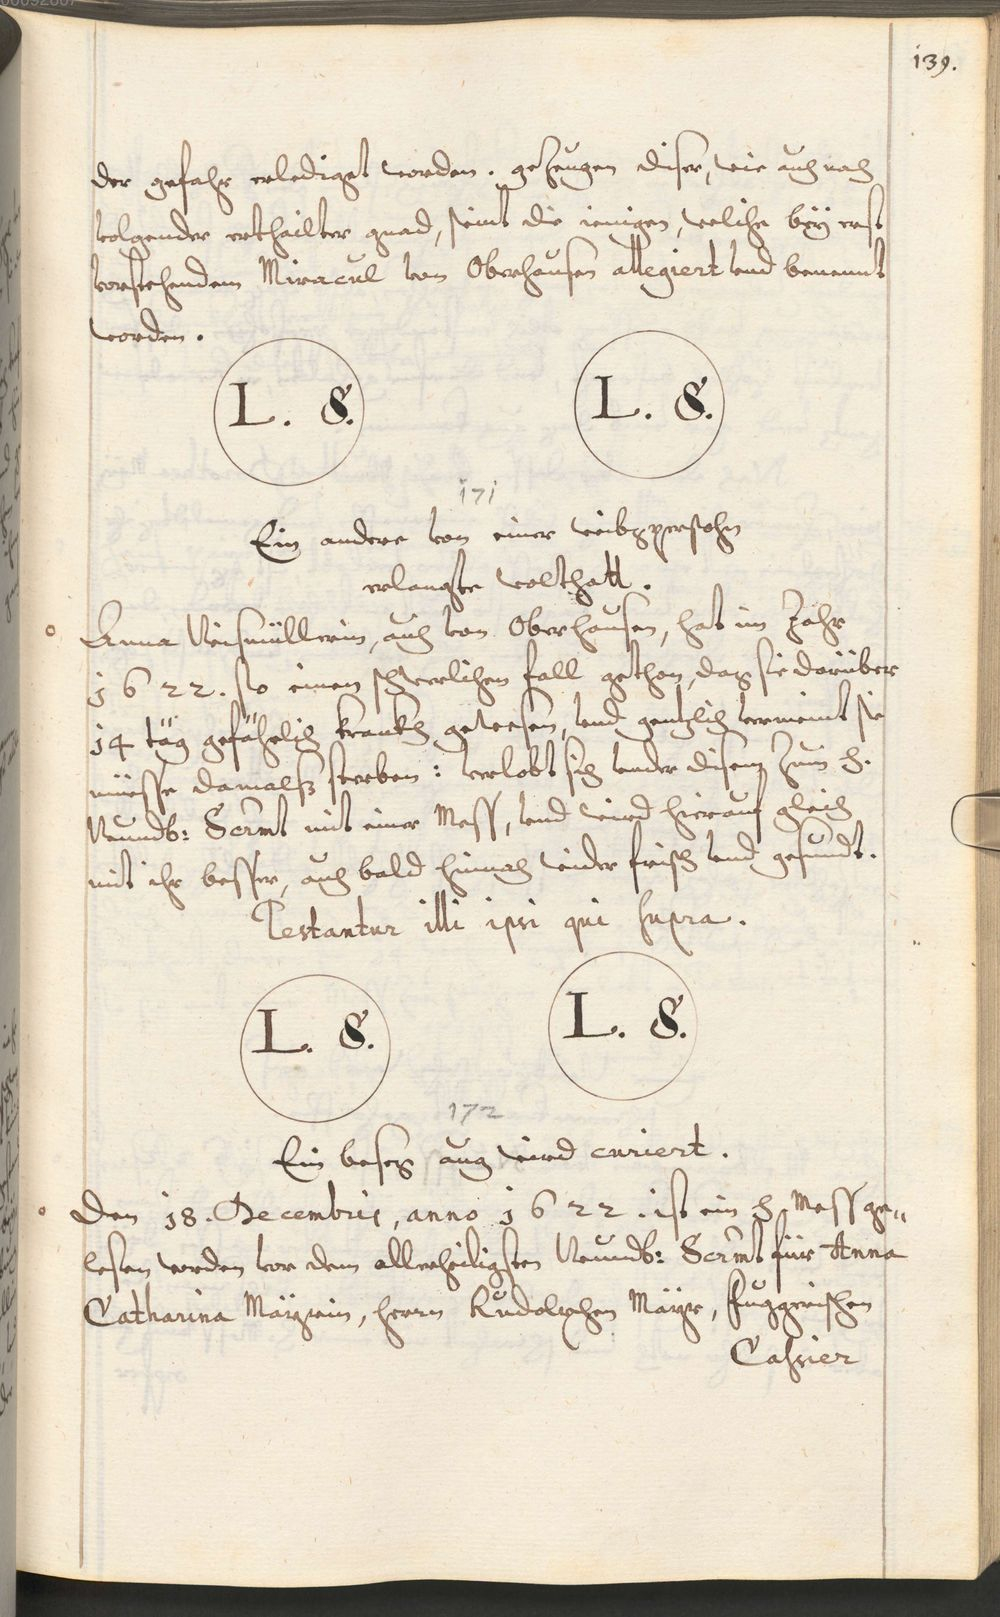 139.
der gefahr erlediget worden. gezeugen diser, wie auch nach
volgender erthailter gnad, seint die ienigen, welche beÿ erst
vorstehendem Miracul von Oberhausen allegiert vnd benennt
worden.
L. S. L. S.
171
Ein andere von einer weibspersohn
erlangte wolthatt.
Anna Neismüllerin, auch von Oberhausen, hat im Jahr
1622. so einen schwerlichen fall gethon, das sie darüber
14 täg gefährlich kranckh gewesen, vnd gentzlich vermeint sie
müesse damalß sterben: verlobt sich vnder disem zum H.
Wundb: Scrmt mit einer Mess, vnd wird hierauf gleich
mit ihr besser, auch bald hernach wider frisch vnd gesundt.
Testantur illi ipsi qui supra.
L. S. L. S.
172
Ein beses aug wird curiert.
Den 18. Decembris, anno 1622. ist ein H. Mess ge„
lesen worden vor dem allerheiligsten Wundb: Scrmt für Anna
Catharina Mäÿrin, herrn Rudolphen Mäÿr, fuggerischen
Cassier